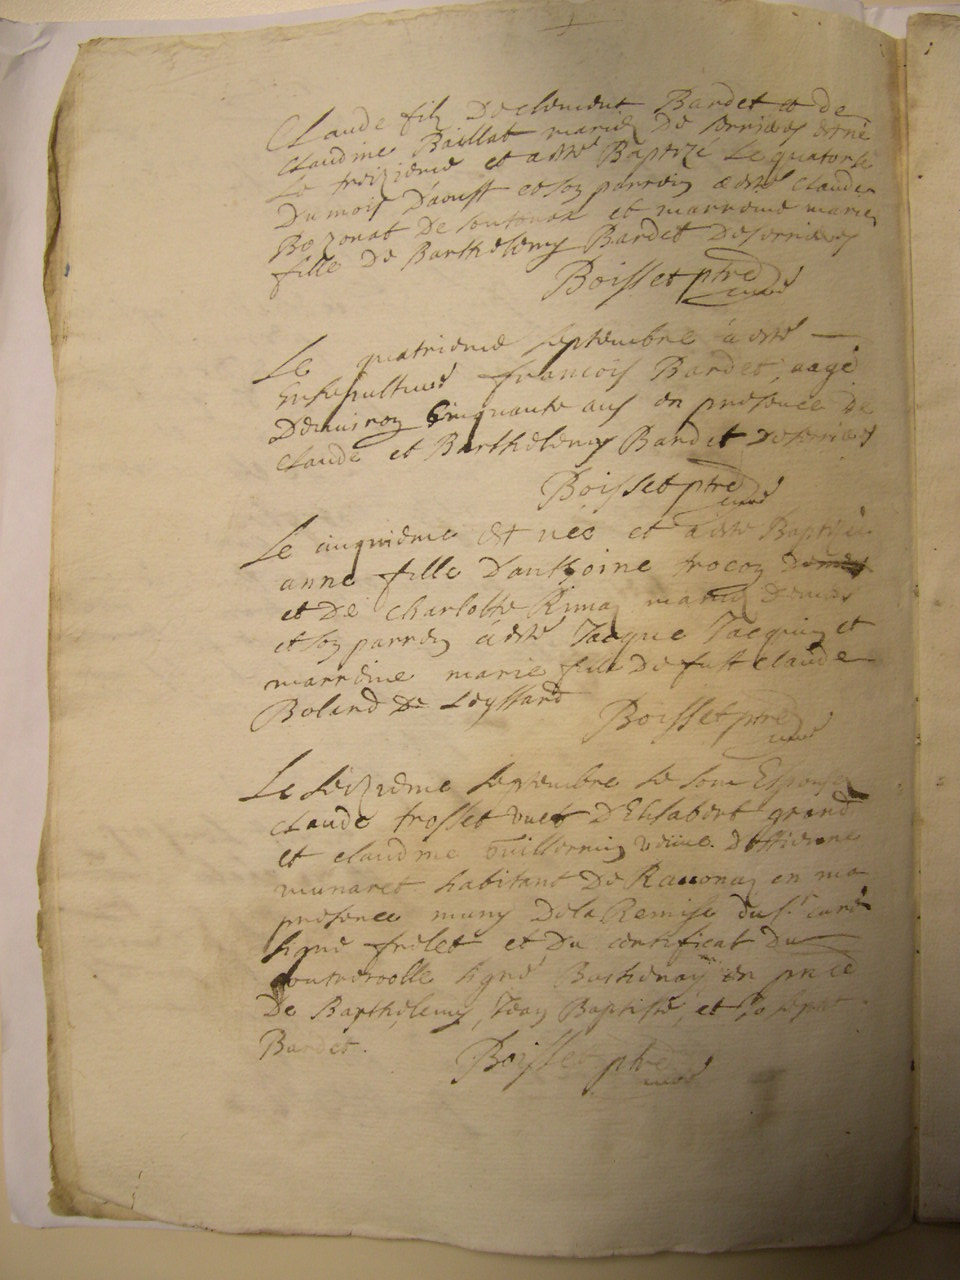 Claude filz De clement Bardet et de
claudine Baillat mariez De serrieres est né
Le treizieme et a esté Baptizé Le quatorse
Du mois D'aoust et son parrein a esté Claude
Bozonat De soutonas et marreine marie
fille De Barthelemy Bardet De serrieres
Boisset ptre curé
Le quatrieme septembre à esté
Ensepulturé francois Bardet, aagé
D'environ Cinquante ans en presence De
claude et Barthelemy Bardet De serrieres
Boisset ptre curé
Le cinquieme est née et à esté Baptizée
anne fille D'anthoine trocon
et De charlotte mariez
et son parrein à esté Jacque Jacquin et
marreine marie fille De fust claude
Boland De Leyssard
Boisset ptre curé
Le seizieme septembre se sont Espousez
claude trosset vuef D'Elisabert grand
et claudine Guillermin veuve D'estienne
munaret habitant De en ma
presence muny De la Remise du sr curé
signé frilet et Du certificat Du
controolle signé en pnce
De Barthelemy, Jean Baptiste, et Joseph
Bardet.
Boisset ptre curé